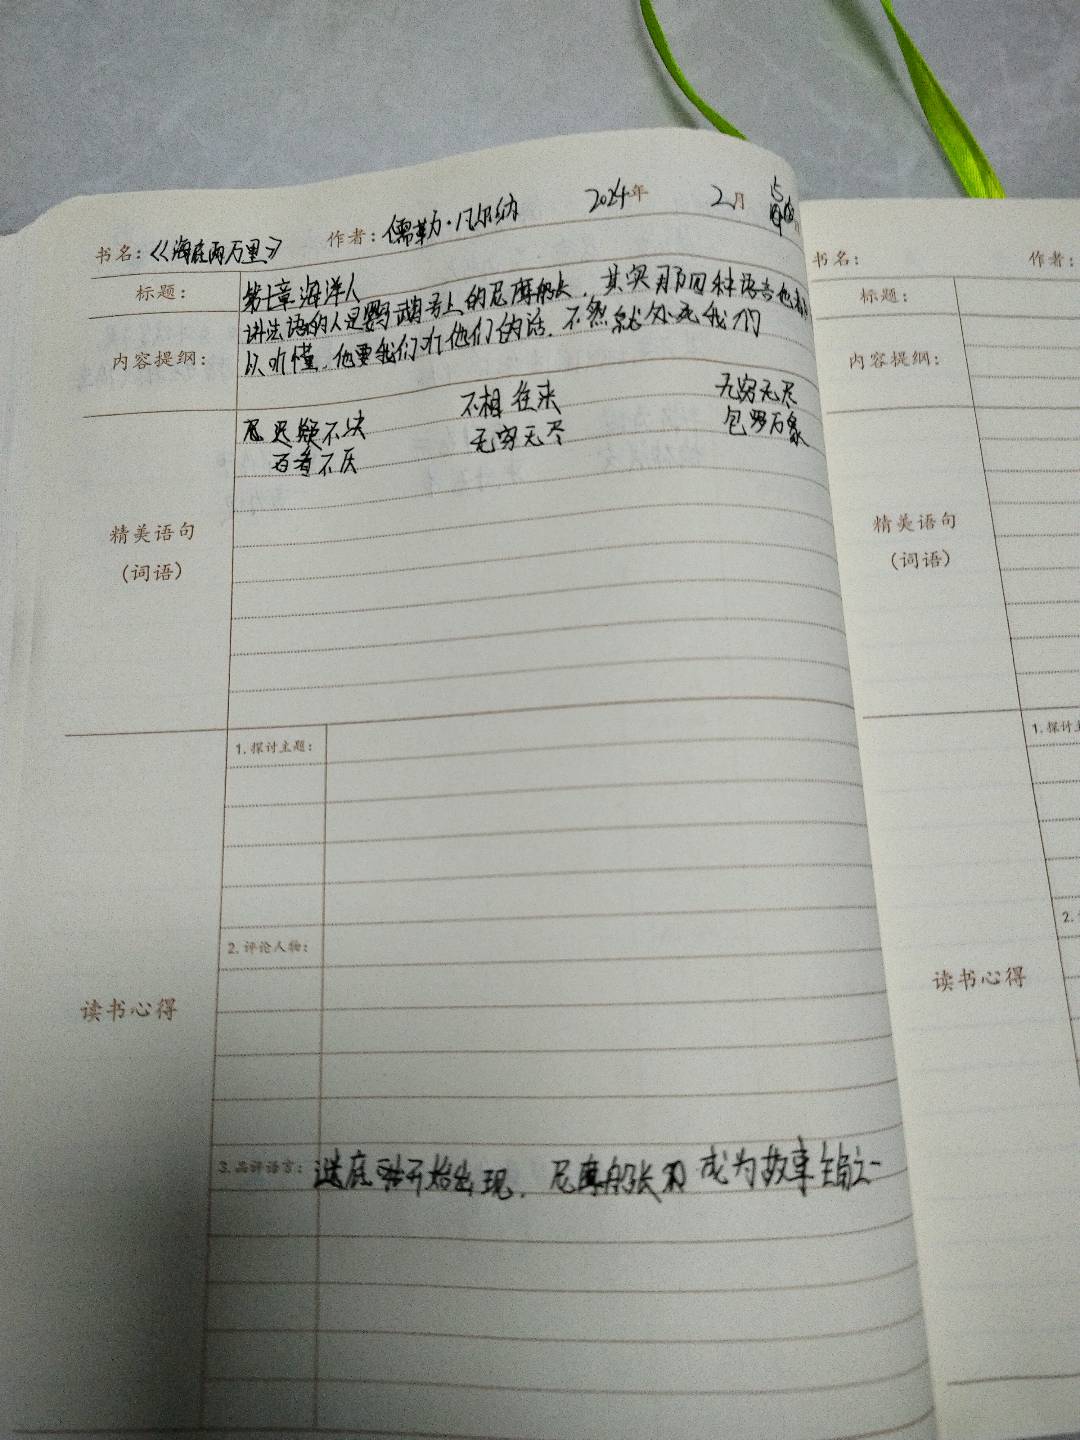 书名：《海底两万里》 作者：儒勒·凡尔纳 2024年 2月
标题： 第十章海洋人
讲法语的人是鹦鹉号上的尼摩船长，其实那四种语言他都
内容提纲： 以听懂，他要我们听他们的话，不然就处死我们
迟疑不决 不相往来 无穷无尽
百看不厌 无穷无尽 包罗万象
精美语句
（词语）
1.探讨主题：
2.评论人物：
读书心得
3.品评语言： 谜底开始出现，尼摩船长成为故事主角之一
书名： 作者：
标题：
内容提纲：
精美语句
（词语）
1.探讨主
2.
读书心得